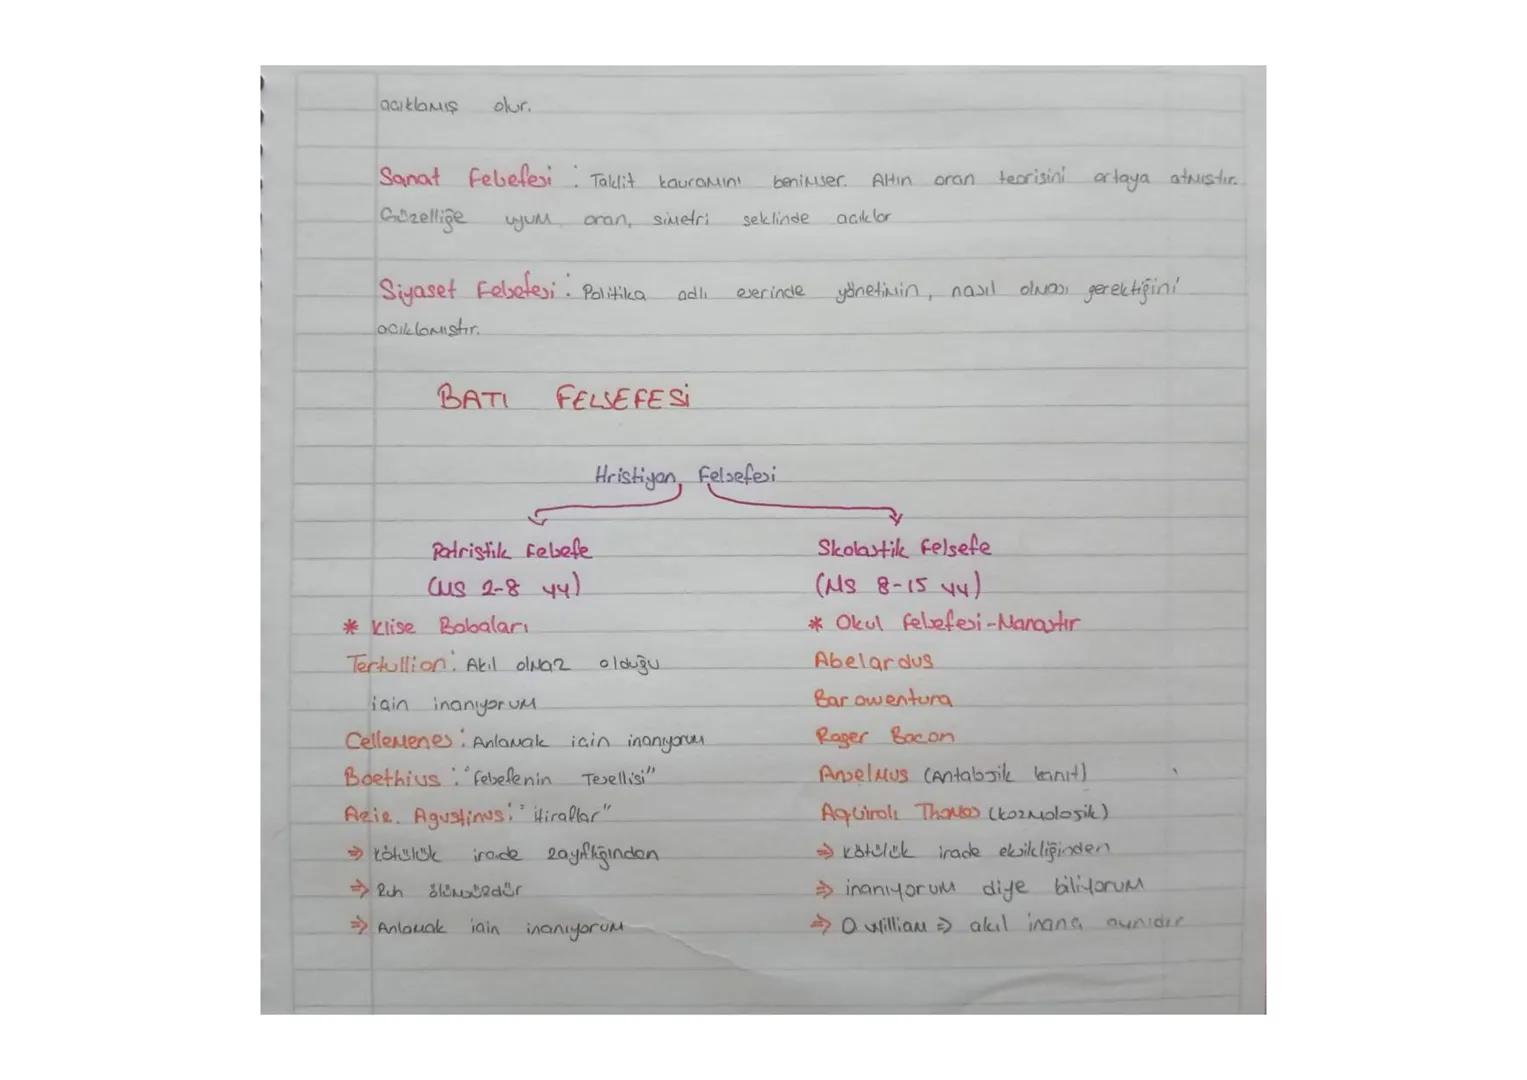 açıklamış olur.
Sanat Felsefesi : Taklit kavramını benimser. Altın oran teorisini ortaya atmıştır.
Güzelliğe uyum, oran, simetri seklinde acıklar
Siyaset Felsefesi : Politika adlı eserinde yönetimin, nasıl olması gerektiğini
acıklamıstır.
BATI FELSEFESİ
Hristiyan Felsefesi
Patristik Felsefe
(MS 2-8 yy)
* Klise Babaları
Tertullion : Akıl olmaz olduğu
için inanıyorum
Cellemenes : Anlamak icin inanıyorum
Boethius : "Felsefenin Tesellisi"
Azie. Agustinus : "itiraflar"
⇒ Kötülük irade zayıflığından
⇒ Ruh ölümsüzdür
⇒ Anlamak için inanıyorum
Skolastik Felsefe
(MS 8-15 yy)
* Okul felsefesi-Manastır
Abelardus
Barowentura
Roger Bacon
Anselmus (Antolojik kanıt)
Aquinolı Thomas (kozmolojik)
⇒ Kötülük irade eksikliğinden
⇒ inanıyorum diye biliyorum
⇒ O william ⇒ akıl inanç ayrıdır